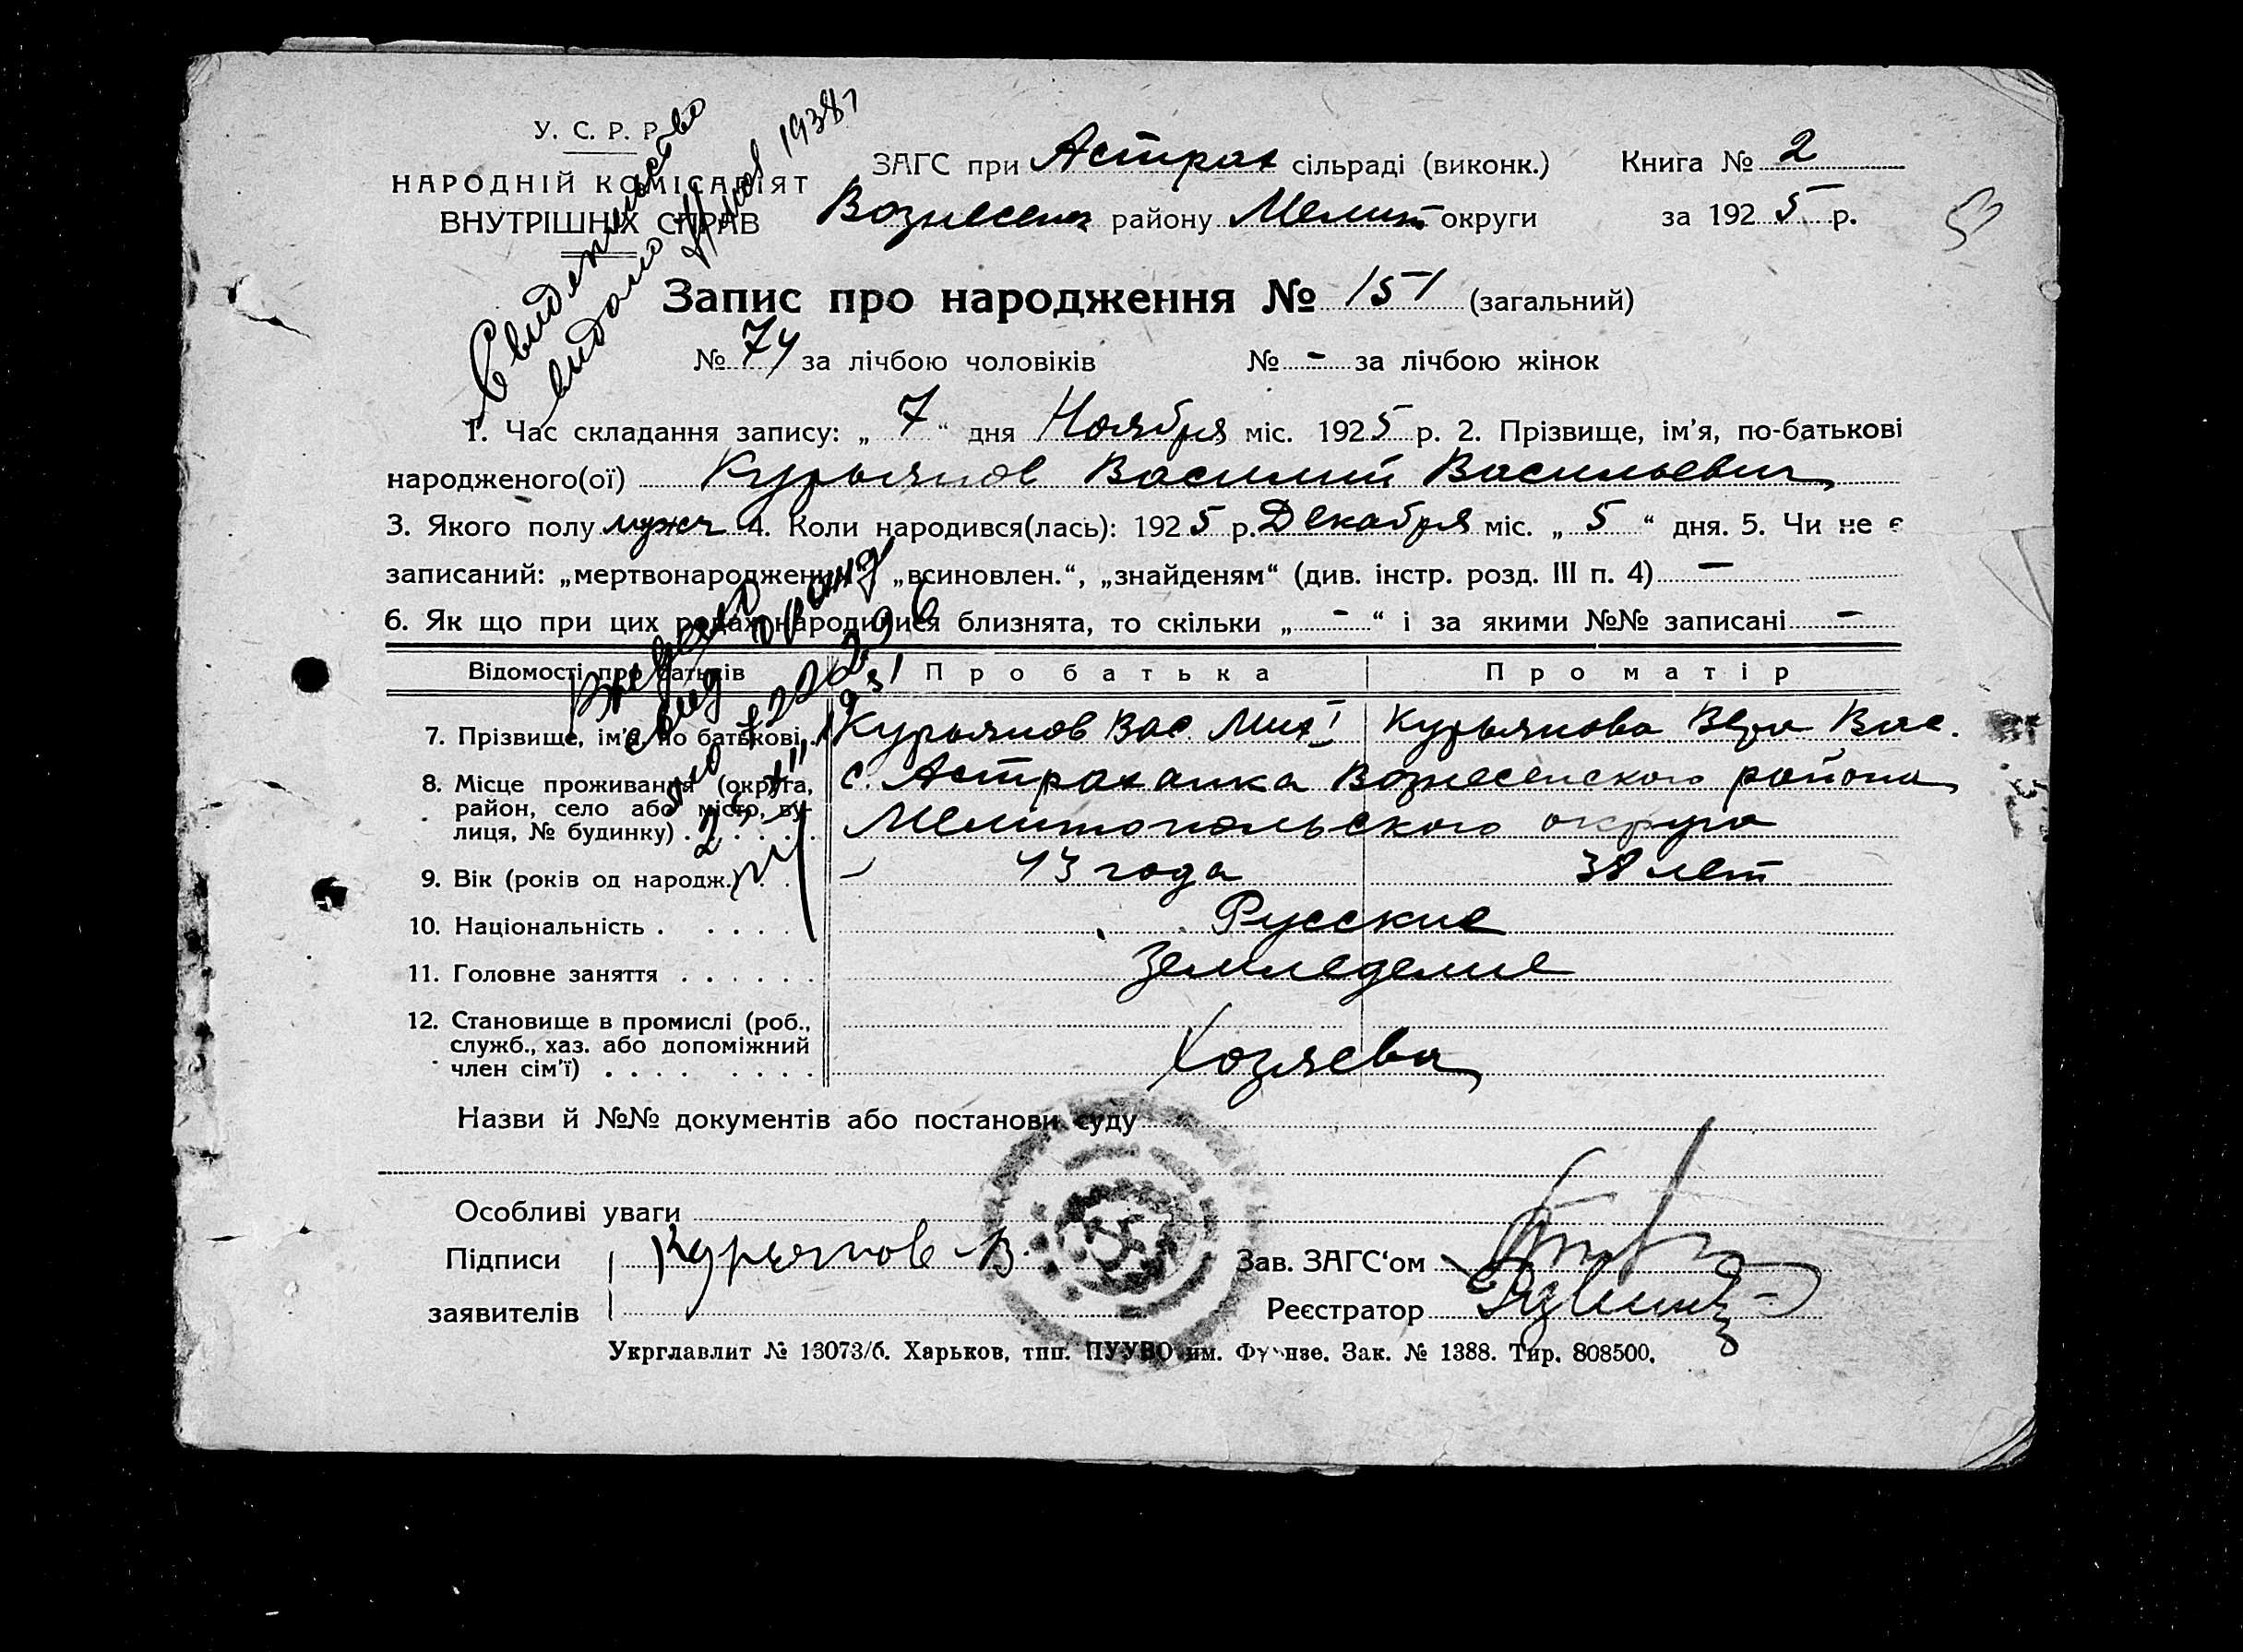 У. С. Р. Р.
НАРОДНІЙ КОМІСАРІЯТ
ВНУТРІШНІХ СПРАВ
Свидетельство
видано 1938
ЗАГС при Астрах сільраді (виконк.) Книга № 2
Вознесенк району Мелит округи за 1925 р.
53
Запис про народження № 151 (загальний)
№ 74 за лічбою чоловіків № - за лічбою жінок
1. Час складання запису: „ 7 “ дня Ноября міс. 1925 р. 2. Прізвище, ім'я, по-батькові
народженого(ої) Курьянов Василий Васильевич
3. Якого полу мужч 4. Коли народився(лась): 1925 р. Декабря міс. „ 5 “ дня. 5. Чи не є
записаний: „мертвонароджений“, „всиновлен.“, „знайденям“ (див. інстр. розд. III п. 4) —
6. Як що при цих родах народилися близнята, то скільки „ - “ і за якими №№ записані -
Відомості про батьків Про батька Про матір
7. Прізвище, ім'я, по батькові Курьянов Вас Мих I Курьянова Вера Вас.
8. Місце проживання (округа, район, село або місто, вулиця, № будинку) с. Астраханка Вознесенского района
Мелитопольского округа
9. Вік (років од народж.) 43 года 38 лет
10. Національність Русские
11. Головне заняття Земледелие
12. Становище в промислі (роб., служб., хаз. або допоміжний член сім'ї) Хозяева
Назви й №№ документів або постанови суду
Особливі уваги
Підписи Курьянов В. Зав. ЗАГС'ом
заявителів Реєстратор
Укрглавлит № 13073/б. Харьков, тип. ПУУВО им. Фрунзе. Зак. № 1388. Тир. 808500.